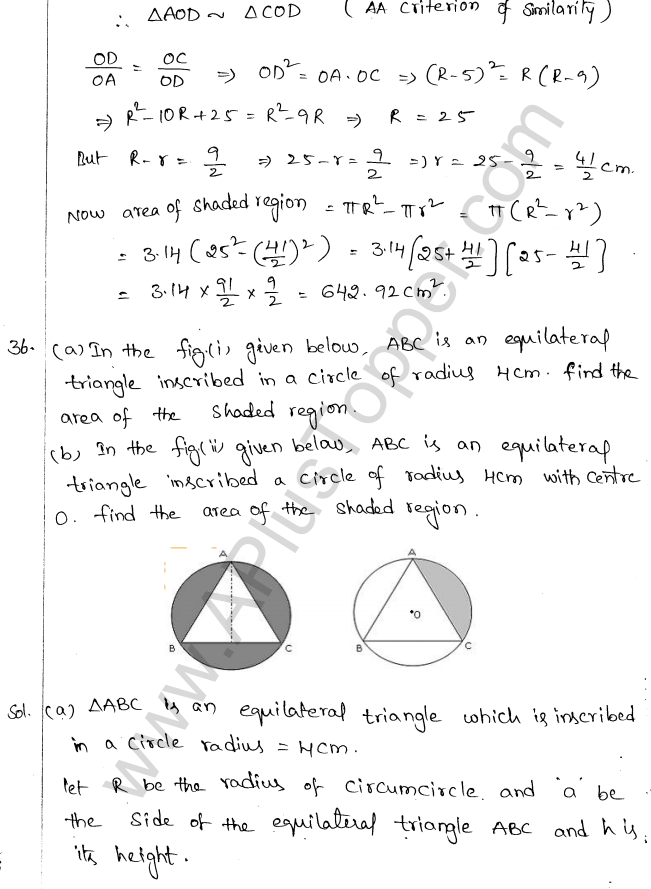 ∴ ΔAOD ~ ΔCOD ( AA Criterion of Similarity )
OD/OA = OC/OD ⇒ OD² = OA·OC ⇒ (R-5)² = R(R-9)
⇒ R²-10R+25 = R²-9R ⇒ R = 25
But R-r = 9/2 ⇒ 25-r = 9/2 ⇒ r = 25-9/2 = 41/2 cm.
Now area of shaded region = πR²-πr² = π(R²-r²)
= 3.14 (25²-(41/2)²) = 3.14 [25+41/2] [25-41/2]
= 3.14 × 91/2 × 9/2 = 642.92 cm².
36. (a) In the fig.(i) given below, ABC is an equilateral
triangle inscribed in a circle of radius 4cm. find the
area of the shaded region.
(b) In the fig(ii) given below, ABC is an equilateral
triangle inscribed a circle of radius 4cm with centre
O. find the area of the shaded region.
A
B C
A
•O
B C
Sol. (a) ΔABC is an equilateral triangle which is inscribed
in a circle radius = 4cm.
let R be the radius of circumcircle. and 'a' be
the side of the equilateral triangle ABC and h is
its height.
www.APlusTopper.com